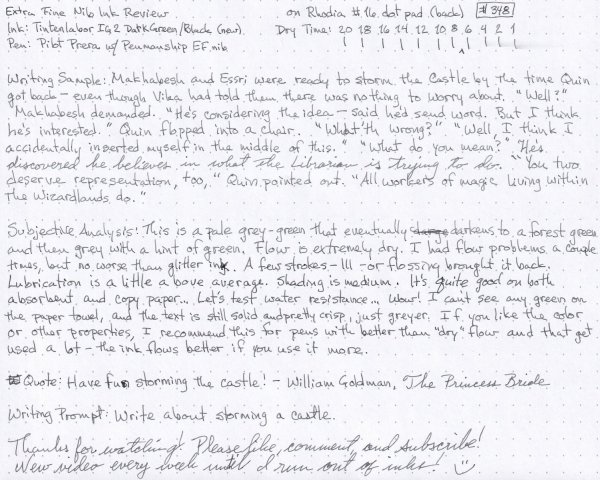 Extra Fine Nib Ink Review on Rhodia #16 dot pad (back) #348
Ink: Tintenlabor IG2 Dark Green/Black (new) Dry Time: 20 18 16 14 12 10 8 6 4 2 1
Pen: Pilot Prera w/ Penmanship EF nib
Writing Sample: Makhabesh and Essri were ready to storm the Castle by the time Quin
got back – even though Vika had told them there was nothing to worry about. "Well?"
Makhabesh demanded. "He's considering the idea – said he'd send word. But I think
he's interested." Quin flopped into a chair. "What's wrong?" "Well, I think I
accidentally inserted myself in the middle of this." "What do you mean?" "He's
discovered he believes in what the Librarian is trying to do. "You two
deserve representation, too," Quin pointed out. "All workers of magic living within
the Wizardlands do."
Subjective Analysis: This is a pale grey-green that eventually darkens to a forest green
and then grey with a hint of green. Flow is extremely dry. I had flow problems a couple
times, but no worse than glitter ink. A few strokes – lll – or flossing brought it back.
Lubrication is a little above average. Shading is medium. It's quite good on both
absorbent and copy paper... Let's test water resistance... Wow! I can't see any green on
the paper towel, and the text is still solid and pretty crisp, just greyer. If you like the color
or other properties, I recommend this for pens with better than "dry" flow and that get
used a lot – the ink flows better if you use it more.
Quote: Have fun storming the castle! – William Goldman, The Princess Bride
Writing Prompt: Write about storming a castle.
Thanks for watching! Please like, comment, and subscribe!
New video every week until I run out of inks!